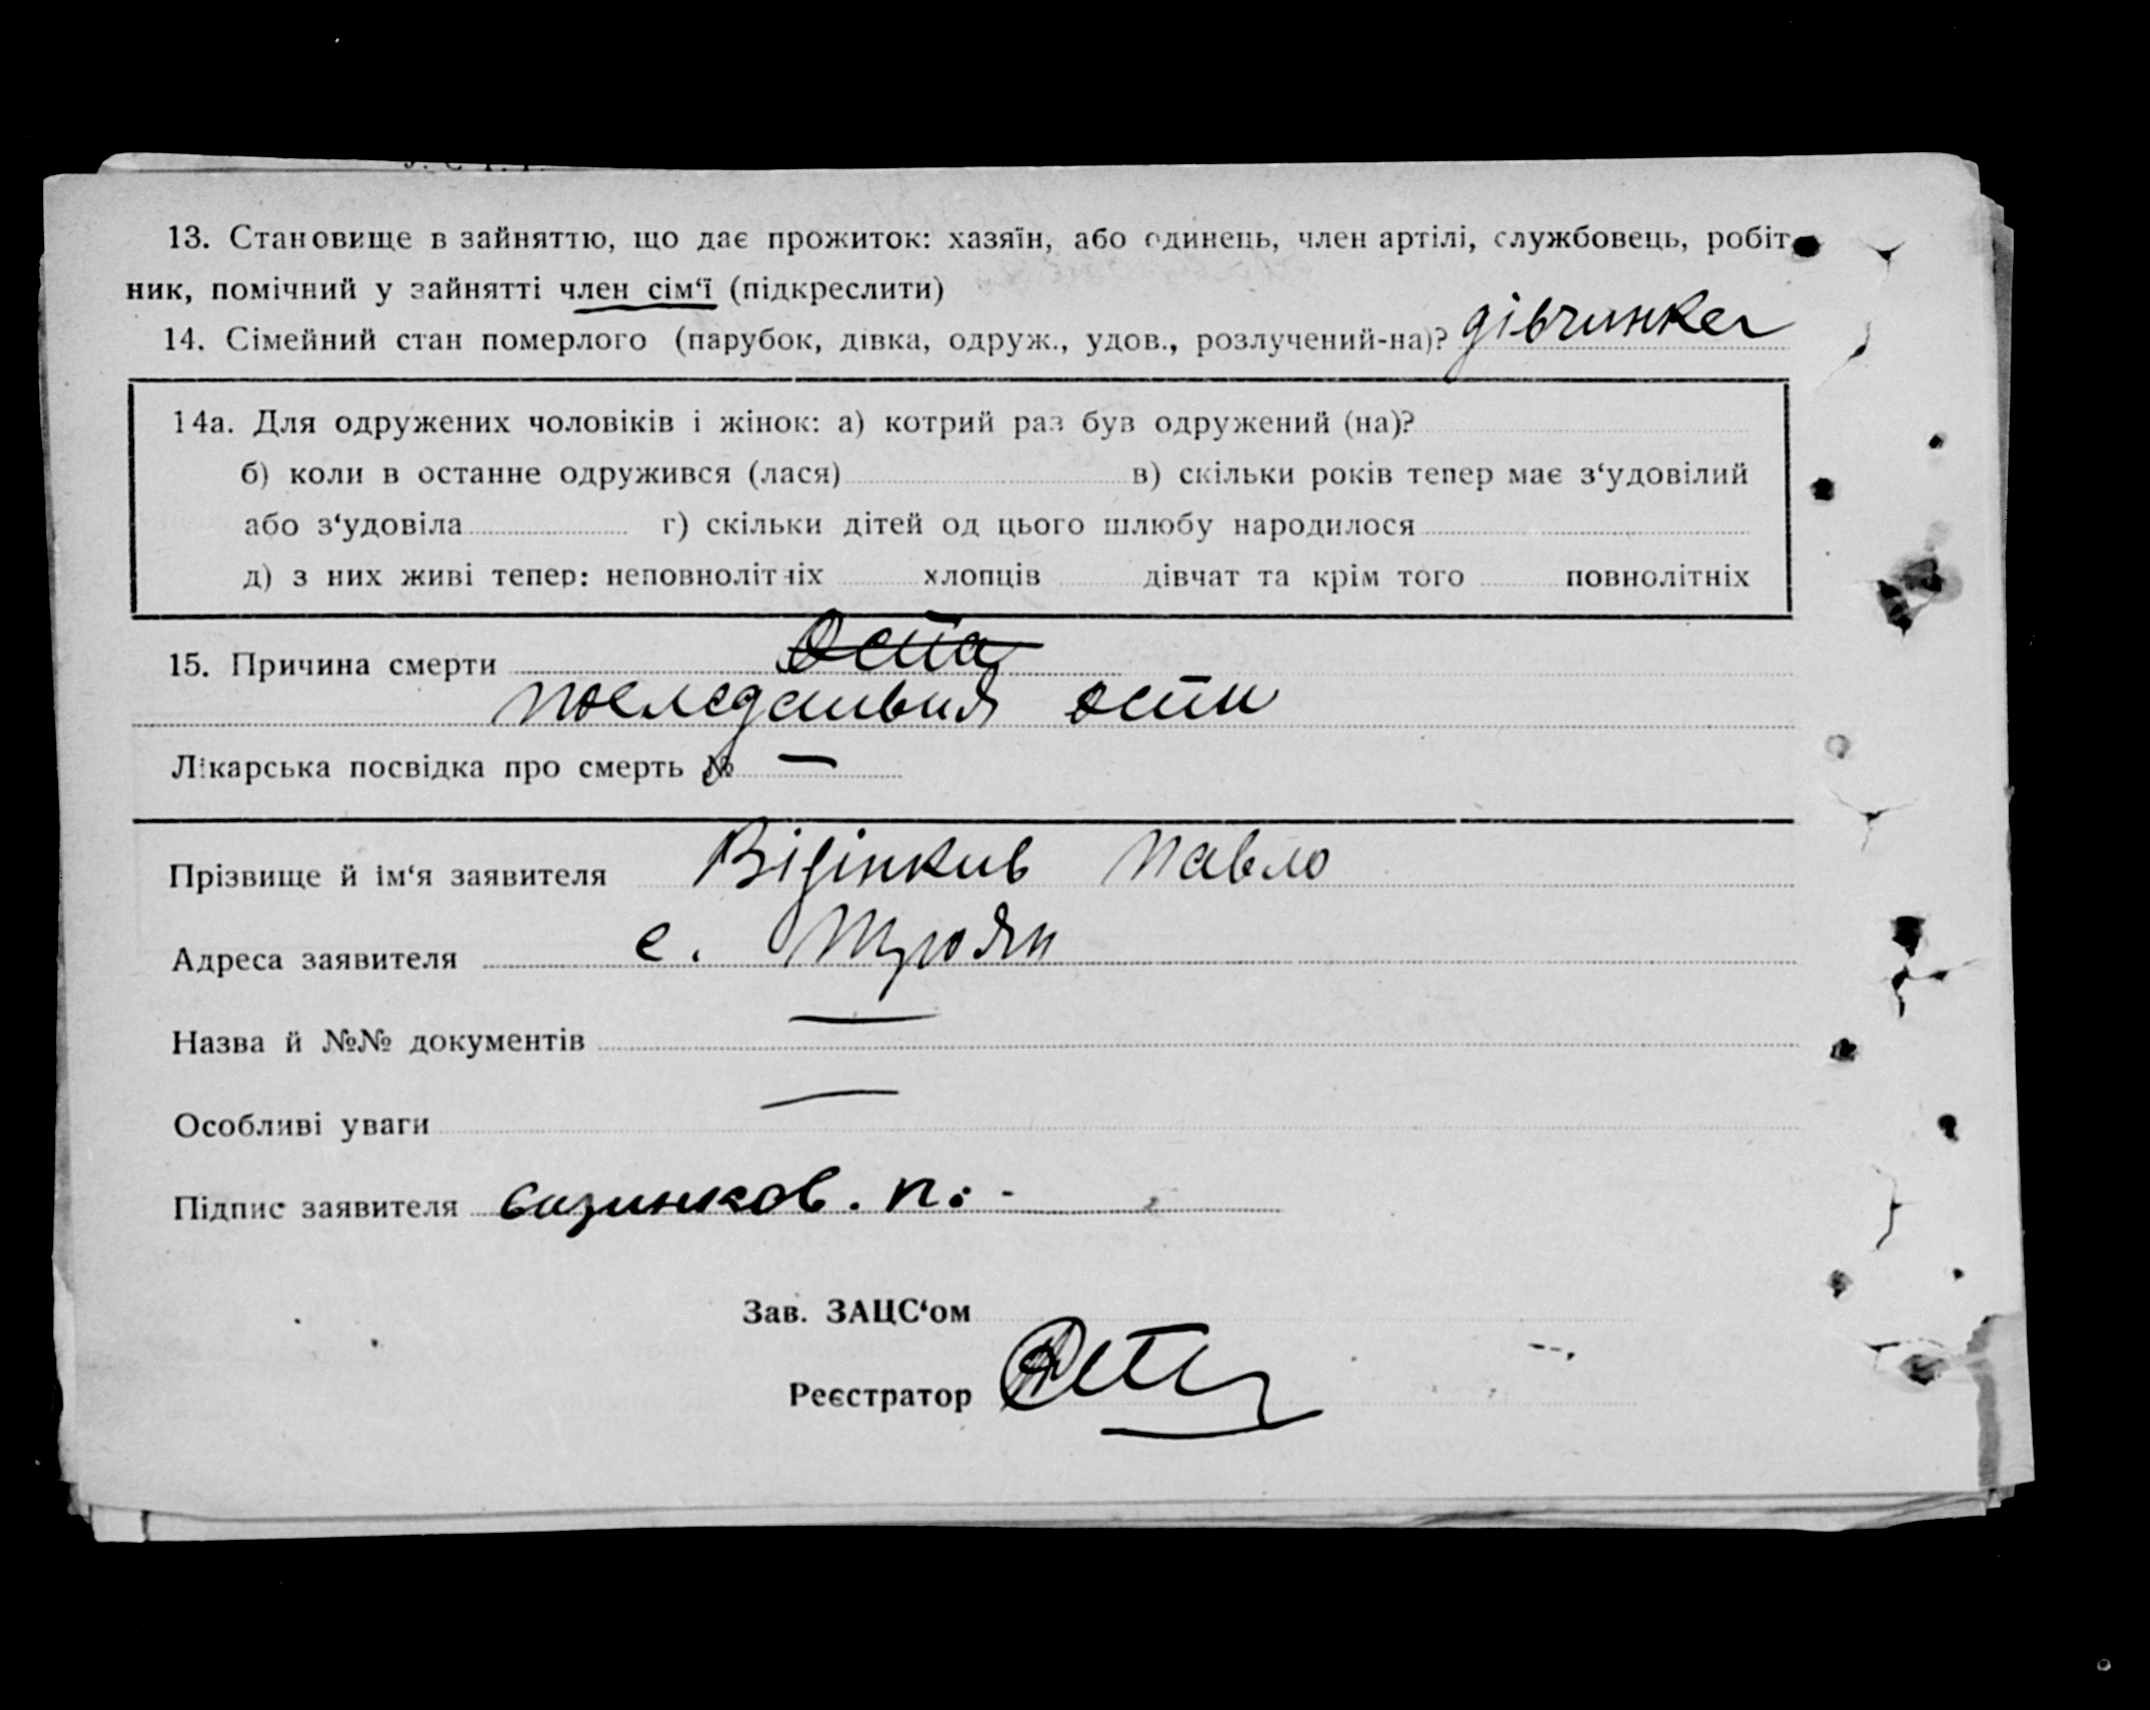 13. Становище в зайняттю, що дає прожиток: хазяїн, або одинець, член артілі, службовець, робіт-
ник, помічний у зайнятті член сім‘ї (підкреслити)
14. Сімейний стан померлого (парубок, дівка, одруж., удов., розлучений-на)? дівчинка
14а. Для одружених чоловіків і жінок: а) котрий раз був одружений (на)?
б) коли в останне одружився (лася) в) скільки років тепер має з‘удовілий
або з‘удовіла г) скільки дітей од цього шлюбу народилося
д) з них живі тепер: неповнолітніх хлопців дівчат та крім того повнолітніх
15. Причина смерти Оспа
последствия оспи
Лікарська посвідка про смерть № —
Прізвище й ім‘я заявителя Візінков Павло
Адреса заявителя с. Трояни
Назва й №№ документів —
Особливі уваги —
Підпис заявителя п.
Зав. ЗАЦС‘ом
Реєстратор